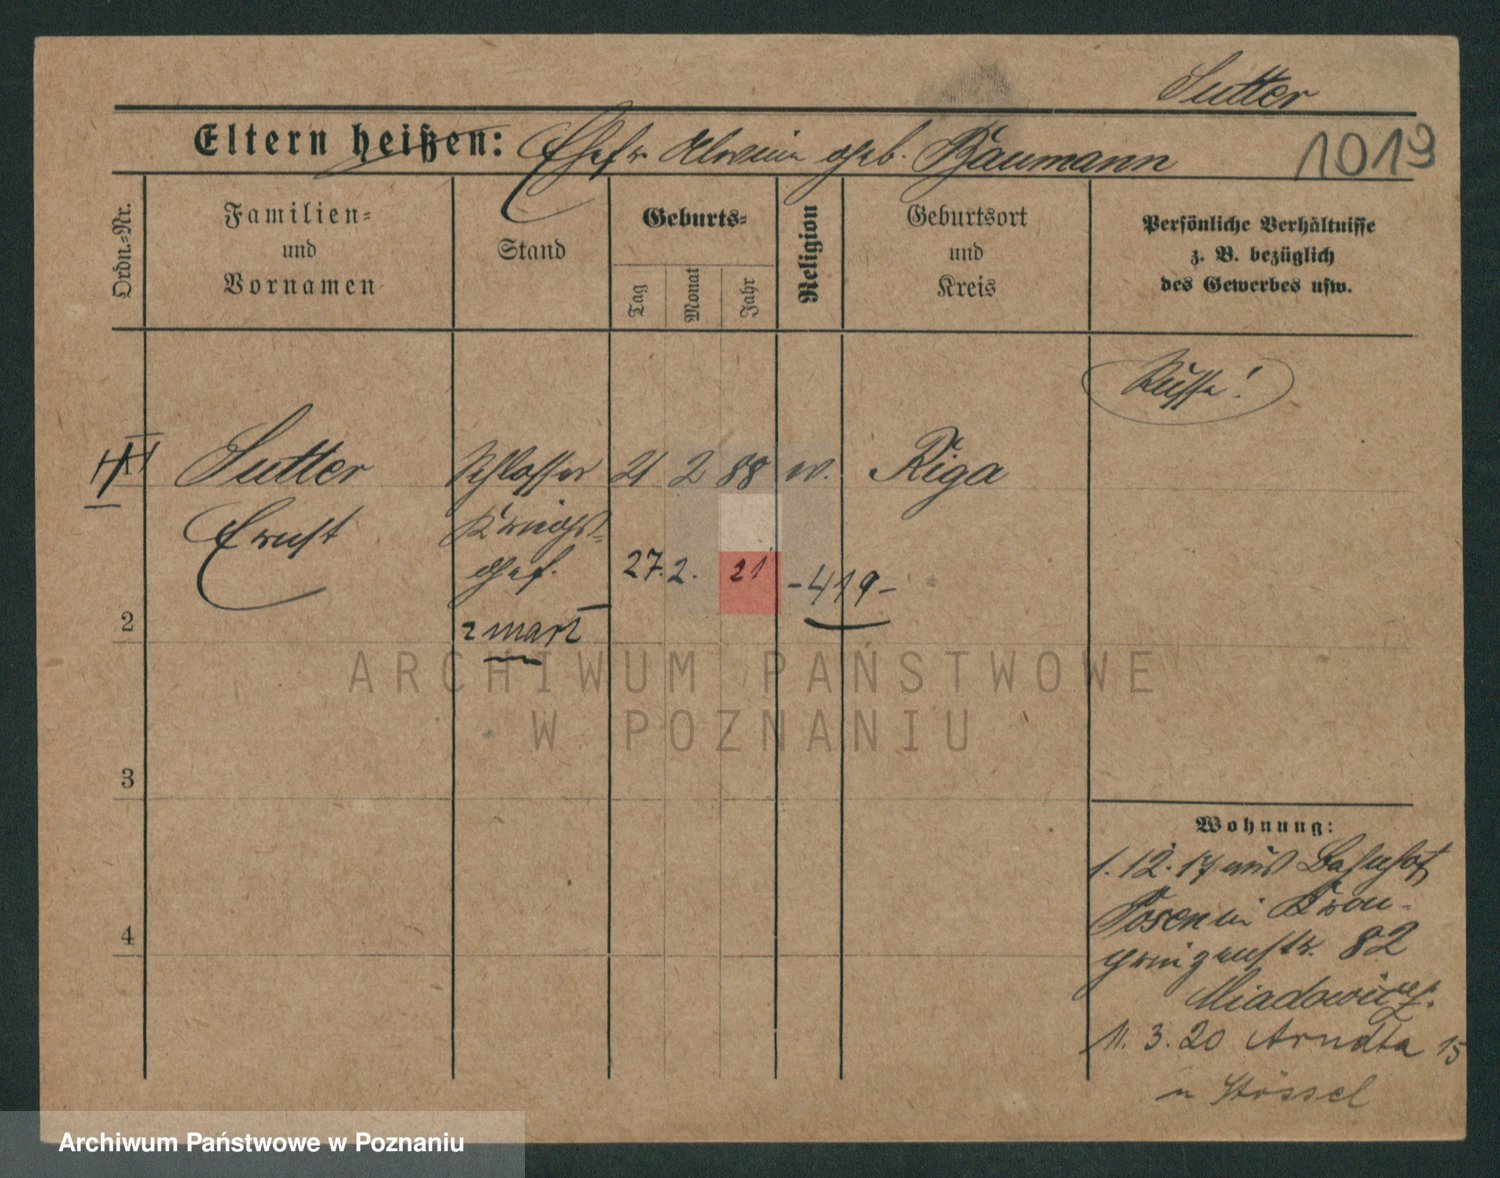 Sutter
Eltern heißen: Ehefr. Alwine geb. Baumann
1019
Ordn.-Nr.
Familien-
und
Vornamen
Stand
Geburts-
Tag
Monat
Jahr
Religion
Geburtsort
und
Kreis
Persönliche Verhältnisse
z. B. bezüglich
des Gewerbes usw.
Russe!
Sutter
Ernst
Schlosser
Kriegs-
gef.
21 2 88 ev. Riga
27. 2. 21 -419-
zmarł
2
3
4
Wohnung:
1.12.17 aus Bahnhof
Posen in Kron-
prinzenstr. 82
Miadowicz
11.3.20 Arndta 15
u Stössel
ARCHIWUM PAŃSTWOWE
W POZNANIU
Archiwum Państwowe w Poznaniu